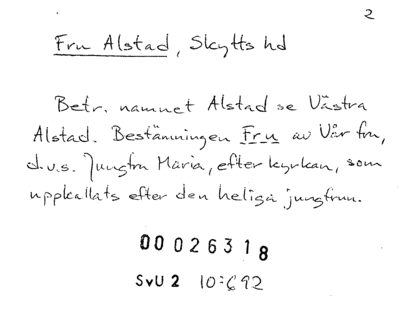 2
Fru Alstad, Skytts hd
Betr. namnet Alstad se Västra
Alstad. Bestämningen Fru av Vår fru,
d.v.s. Jungfru Maria, efter kyrkan, som
uppkallats efter den heliga jungfrun.
00026318
SvU 2 10:692